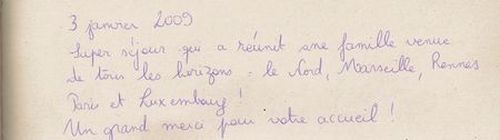 3 janvier 2009
Super séjour qui a réunit une famille venue
de tous les horizons : le Nord, Marseille, Rennes
Paris et Luxembourg !
Un grand merci pour votre accueil !